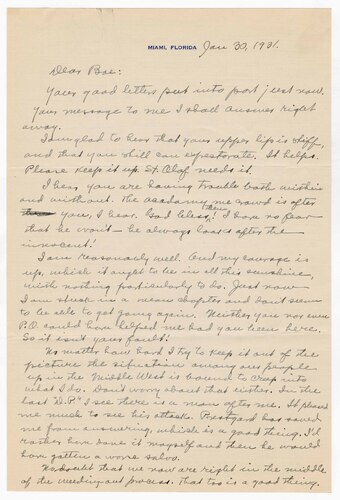 MIAMI, FLORIDA Jan 30, 1931.
Dear Boe:
Your good letters put into port just now.
Your message to me I shall answer right
away.
I am glad to hear that your upper lip is stiff,
and that you still can expectorate. It helps.
Please keep it up. St. Olaf needs it.
I hear you are having trouble both within
and without. The academy me crowd is after
you, I hear. God bless them! I have no fear
that he won't - he always looks after the
innocent!
I am reasonably well. And my courage is
up, which it ought to be in all this sunshine,
with nothing particularly to do. Just now
I am stuck in a mean chapter and don't seem
to be able to get going again. Neither you nor even
P.O. could have helped me had you been here.
So it isn't your fault!
No matter how hard I try to keep it out of the
picture the situation among our people
up in the Middle West is bound to creep into
what I do. Don't worry about that either. In the
last "D.P." I see there is a man after me. It pleased
me much to see his attack. has saved
me from answering, which is a good thing. I'd
rather have done it myself and then he would
have gotten a worse salvo.
No doubt that we now are right in the middle
of the weeding out process. That too is a good thing.